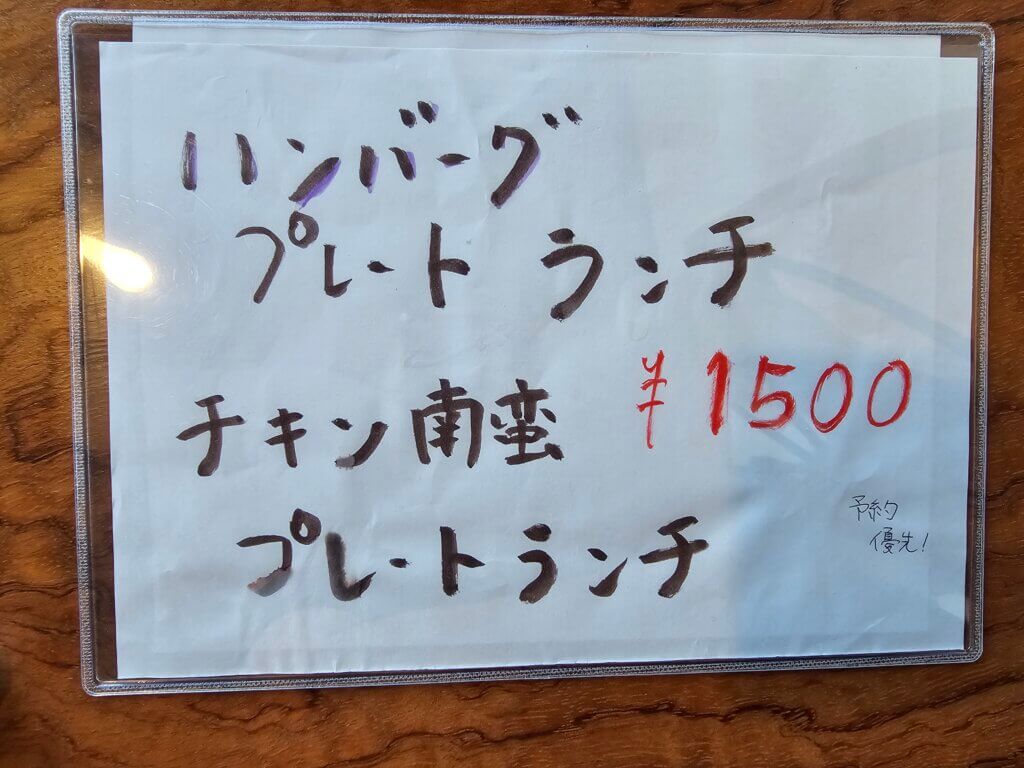 ハンバーグ
プレートランチ
チキン南蛮
¥1500
プレートランチ
予約
優先!